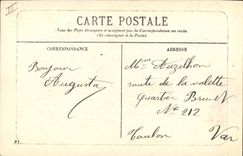 II
CARTE POSTALE
Tous les Pays étrangers n'acceptent pas la Correspondance au recto
(Se renseigner à la Poste)
CORRESPONDANCE
ADRESSE
Bonjour
Augusta
Mme Auzelhon
route de la valette
quartier Brunet
No 212
Toulon Var